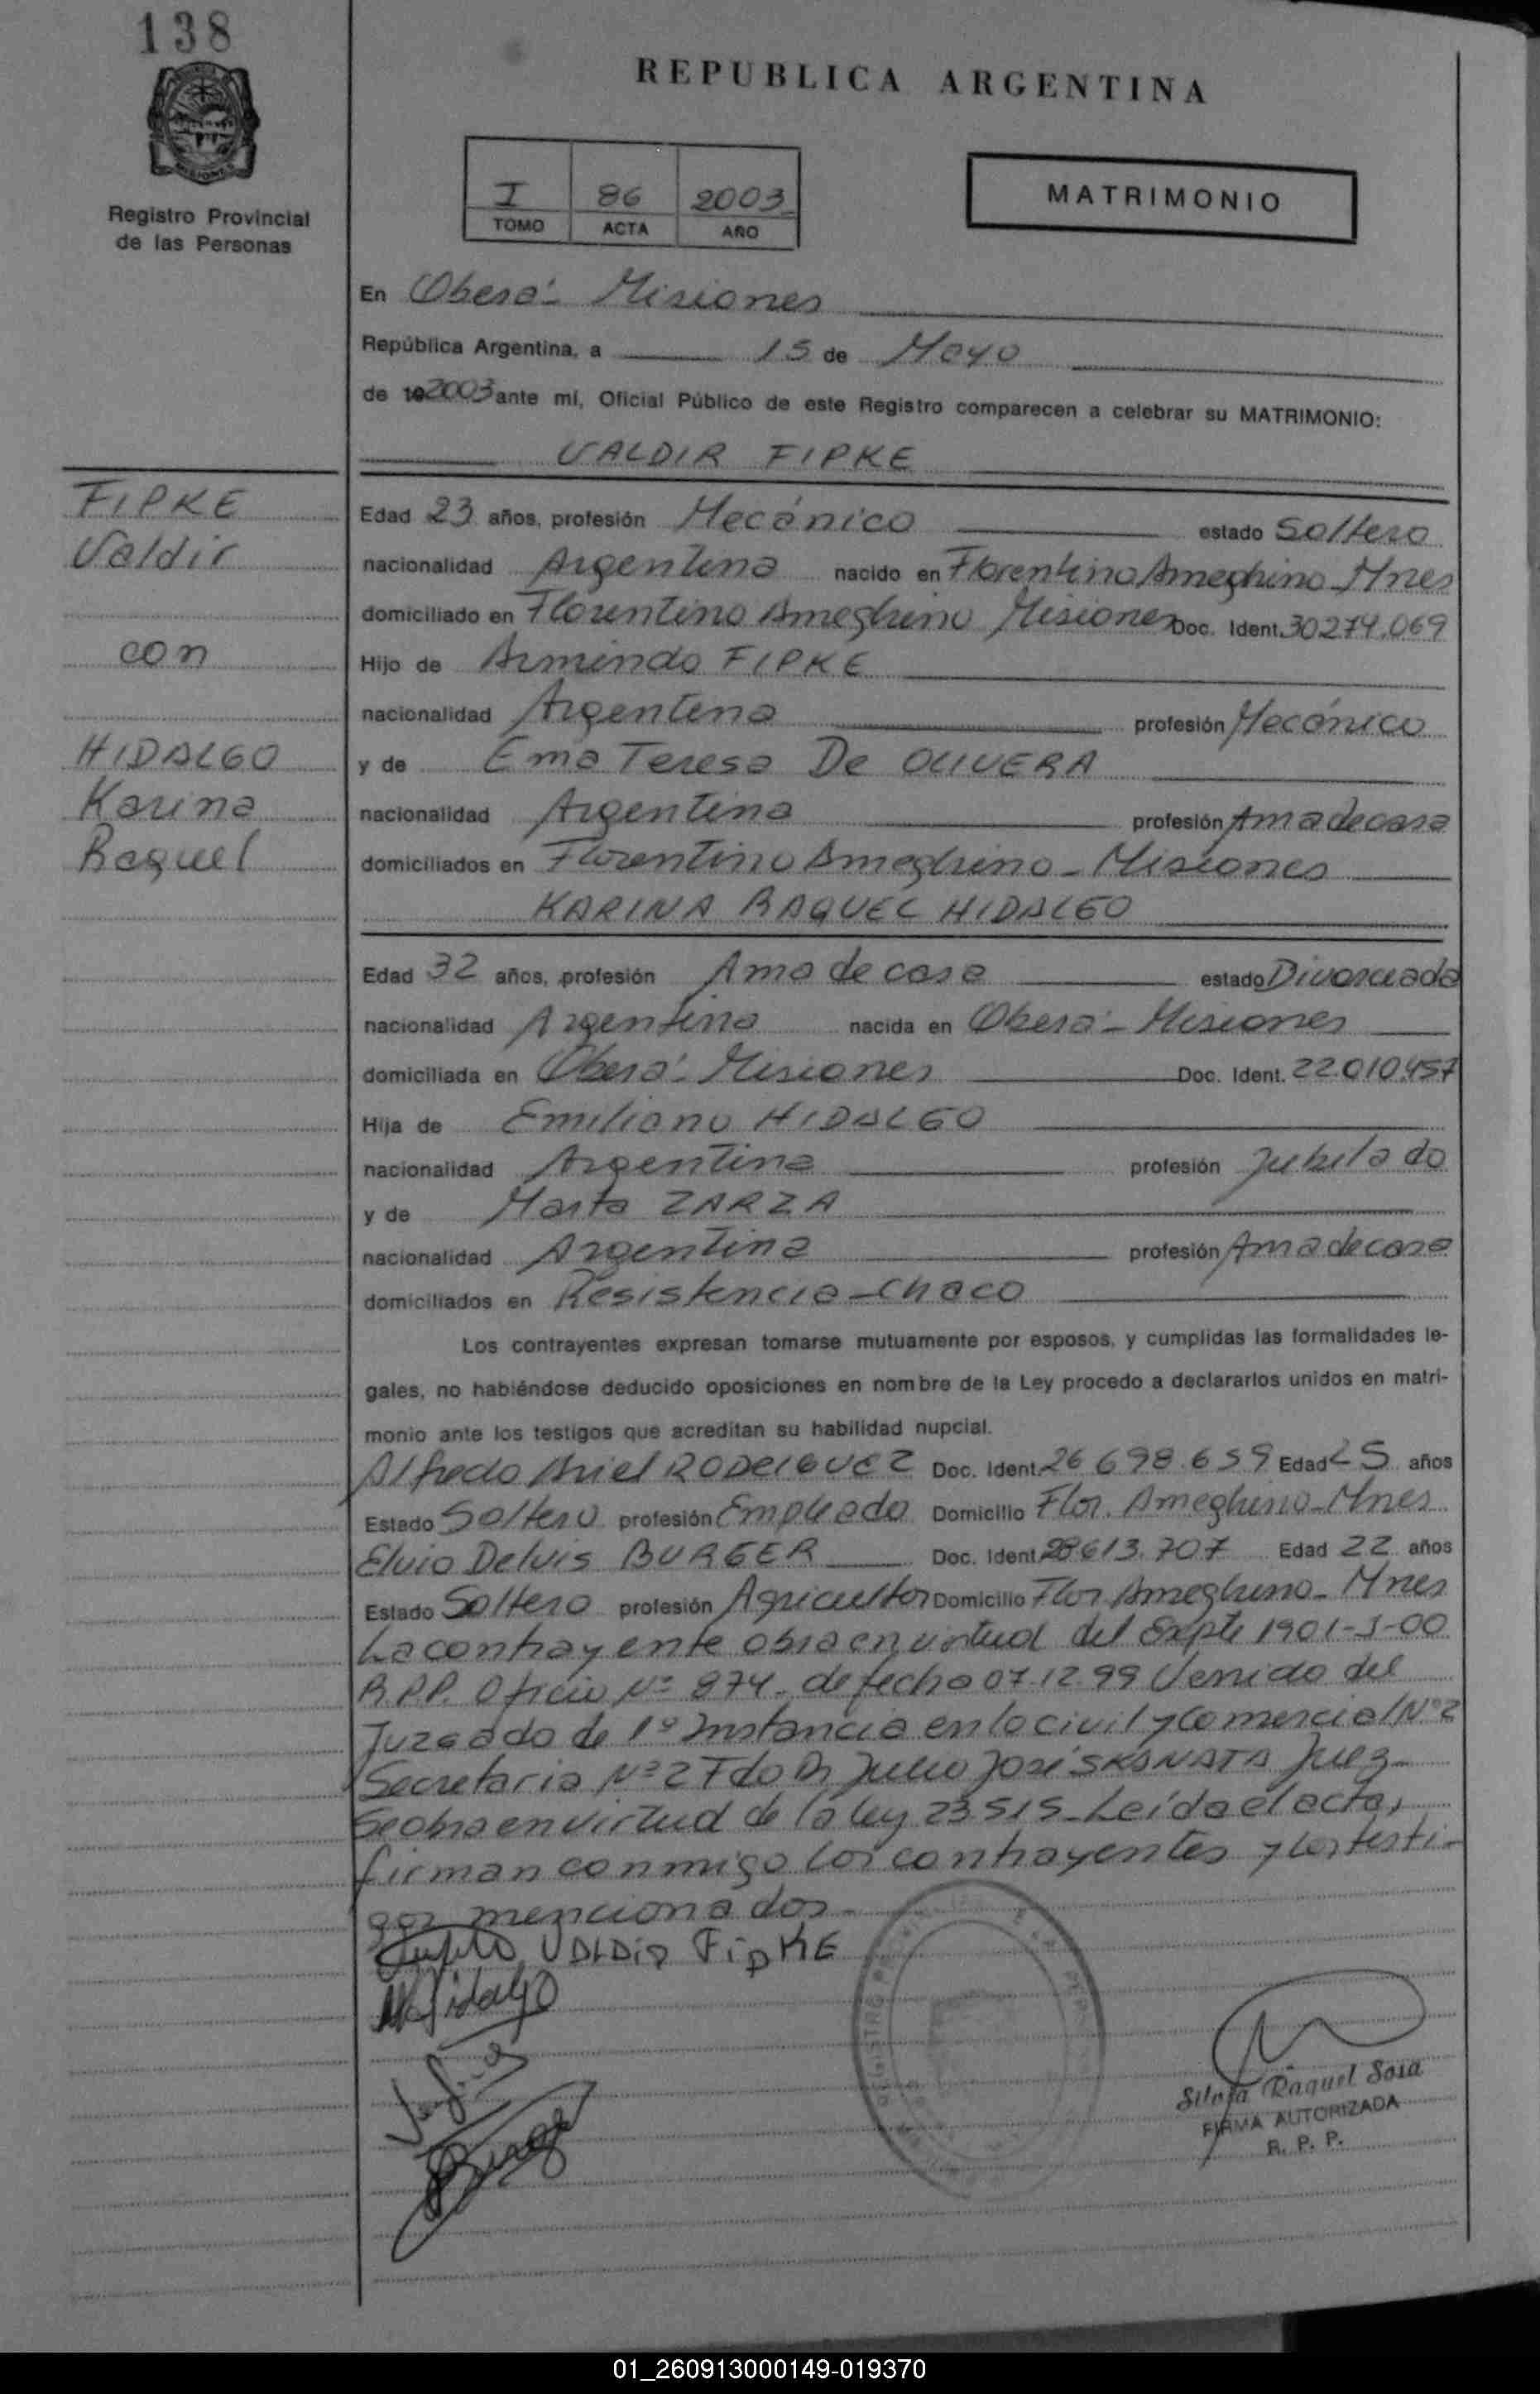 138
REPUBLICA ARGENTINA
Registro Provincial
de las Personas
I 86 2003
TOMO ACTA AÑO
MATRIMONIO
En Oberá - Misiones
República Argentina, a 15 de Mayo
de 192003 ante mí, Oficial Público de este Registro comparecen a celebrar su MATRIMONIO:
VALDIR FIPKE
FIPKE
Valdir
con
HIDALGO
Karina
Raquel
Edad 23 años, profesión Mecánico estado Soltero
nacionalidad Argentina nacido en Florentino Ameghino - Mnes
domiciliado en Florentino Ameghino Misiones Doc. Ident. 30274.069
Hijo de Armindo FIPKE
nacionalidad Argentina profesión Mecánico
y de Ema Teresa De OLIVERA
nacionalidad Argentina profesión Ama de casa
domiciliados en Florentino Ameghino - Misiones
KARINA RAQUEL HIDALGO
Edad 32 años, profesión Ama de casa estado Divorciada
nacionalidad Argentina nacida en Oberá - Misiones
domiciliada en Oberá - Misiones Doc. Ident. 22.010.457
Hija de Emiliano HIDALGO
nacionalidad Argentina profesión Jubilado
y de Marta ZARZA
nacionalidad Argentina profesión Ama de casa
domiciliados en Resistencia - Chaco
Los contrayentes expresan tomarse mutuamente por esposos, y cumplidas las formalidades le-
gales, no habiéndose deducido oposiciones en nombre de la Ley procedo a declararlos unidos en matri-
monio ante los testigos que acreditan su habilidad nupcial.
Alfredo Ariel RODRIGUEZ Doc. Ident. 26 698.659 Edad 25 años
Estado Soltero profesión Empleado Domicilio Flor. Ameghino - Mnes
Elvio Delvis BURGER Doc. Ident. 28613.707 Edad 22 años
Estado Soltero profesión Agricultor Domicilio Flor Ameghino - Mnes
La contrayente obra en virtud del Expte 1901-J-00
R.P.P. Oficio Nº 874 - de fecha 07.12.99 Venido del
Juzgado de 1º Instancia en lo civil y Comercial Nº 2
Secretaria Nº 2 Fdo Dr Julio José SKANATA Juez -
Se obra en virtud de la ley 23.515 - Leída el acta,
firman conmigo los contrayentes y los testi-
gos mencionados -
VALDIR FipKE
Hidalgo
Burger
Silvia Raquel Sosa
FIRMA AUTORIZADA
R. P. P.
01_260913000149-019370